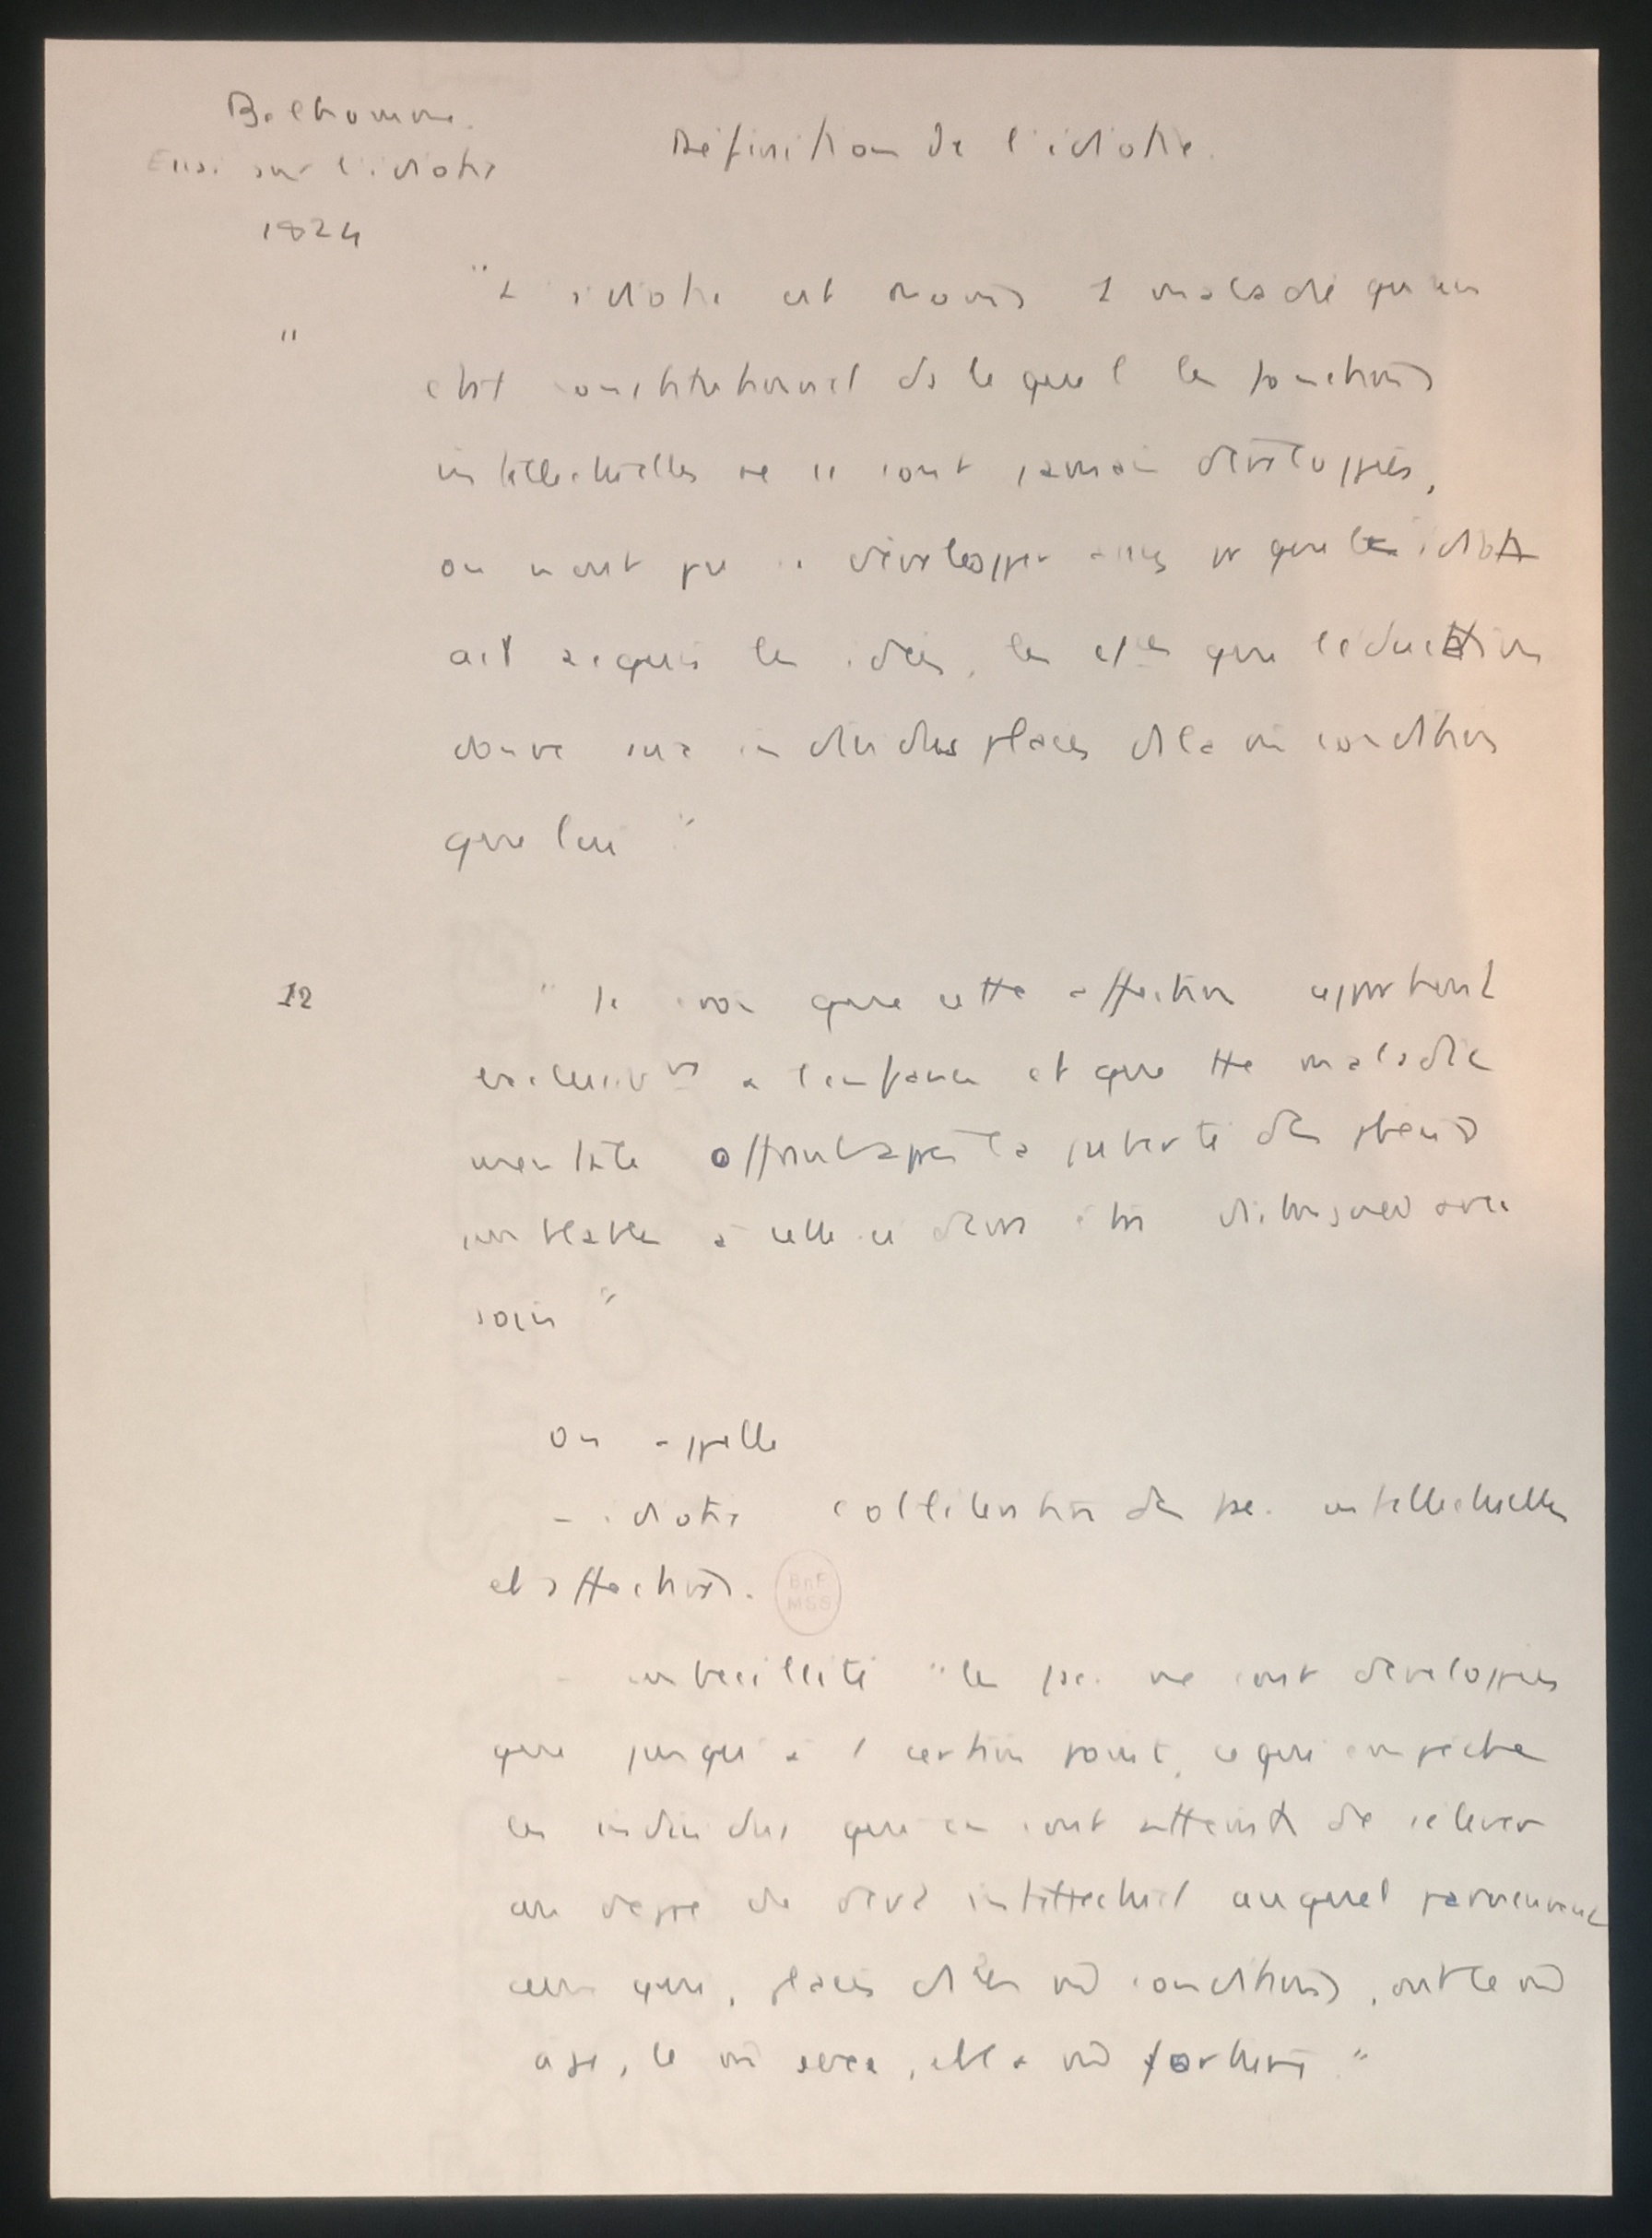 Belhomme.
Essai sur l'idiotie
1824
Définition de l'idiotie.
"L'idiotie est moins 1 maladie qu'un
"
état constitutionnel ds lequel les fonctions
intellectuelles ne se sont jamais développées,
ou n'ont pu se développer assez pr que les idiots
ait acquis les idées, les que l'éducation
donne aux individus placés ds la m condition
que lui"
12
"Je crois que cette affection appartient
exclusivt à l'enfance et que tte maladie
mentale offrant après la puberté des phen
semblables à celle ci doivt être distinguée avec
soin"
On appelle
- idiotie l'oblitération des fac. intellectuelles
et affectives.
- imbécillité "les fac. ne sont développées
que jusqu'à 1 certain point, ce qui empêche
les individus qui en sont atteints de s'élever
au degré de devt intellectuel auquel parviennent
ceux qui, placés ds les m conditions, ont le m
âge, le m sexe, et la m fortune."
BnF
MSS